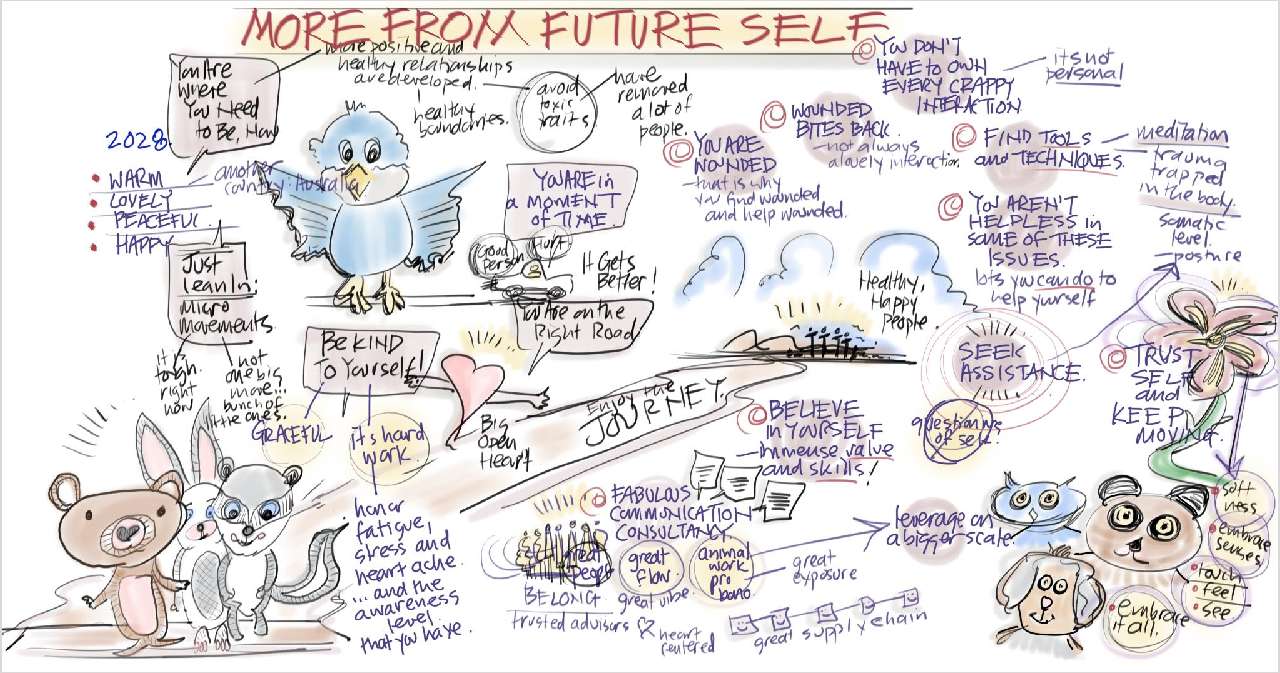 MORE FROM FUTURE SELF
You Are
Where
You Need
to Be, Now
more positive and
healthy relationships
are developed.
healthy
boundaries.
avoid
toxic
traits
have
removed
a lot of
people.
2028
• WARM
• LOVELY
• PEACEFUL
• HAPPY
another
country: Australia
YOU ARE in
a MOMENT
OF TIME.
Good
Person
Hurt
It Gets
Better!
You Are on the
Right Road
Just
Lean In:
Micro
Movements.
It is
tough
right
now
not
one big
move!!
bunch of
little ones.
Be KIND
To Yourself!
GRACEFUL
it's hard
work.
honor
fatigue,
stress and
heart ache.
... and the
awareness
level
that you have.
Big
Open
Heart
Enjoy the
JOURNEY.
© YOU DON'T
HAVE to OWN
EVERY CRAPPY
INTERACTION
it's not
personal
© WOUNDED
BITES BACK.
- not always
a lovely interaction.
© YOU ARE
WOUNDED
- that is why
you find wounded
and help wounded.
© FIND TOOLS
and TECHNIQUES.
meditation
trauma
trapped
in the body.
somatic
level.
- posture
© YOU AREN'T
HELPLESS in
SOME OF THESE
ISSUES.
lots you can do to
help yourself
Healthy,
Happy
People.
SEEK
ASSISTANCE.
© TRUST
SELF
and
KEEP
MOVING.
questioning
of self.
© BELIEVE
in YOURSELF
- immense value
and skills!
© FABULOUS
COMMUNICATION
CONSULTANCY
great
people
BELONG.
great
flow.
great vibe.
animal
work
pro
bono
great
exposure
leverage on
a bigger scale
trusted advisors &
heart
centered
great supply chain
• soft
ness
• embrace
senses
• touch
• feel
• see
• embrace
it all.